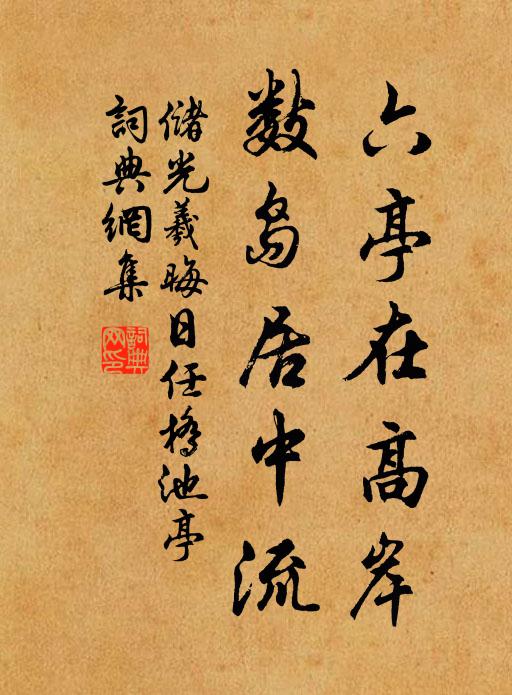 六亭在高岸
数岛居中流
储光羲晦日任桥池亭
詞典網集
詞典网印